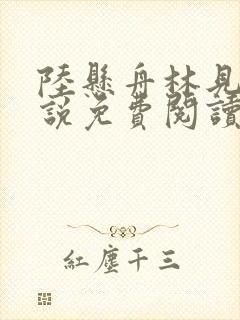 陸懸舟林見
說免費閱讀
紅塵千三